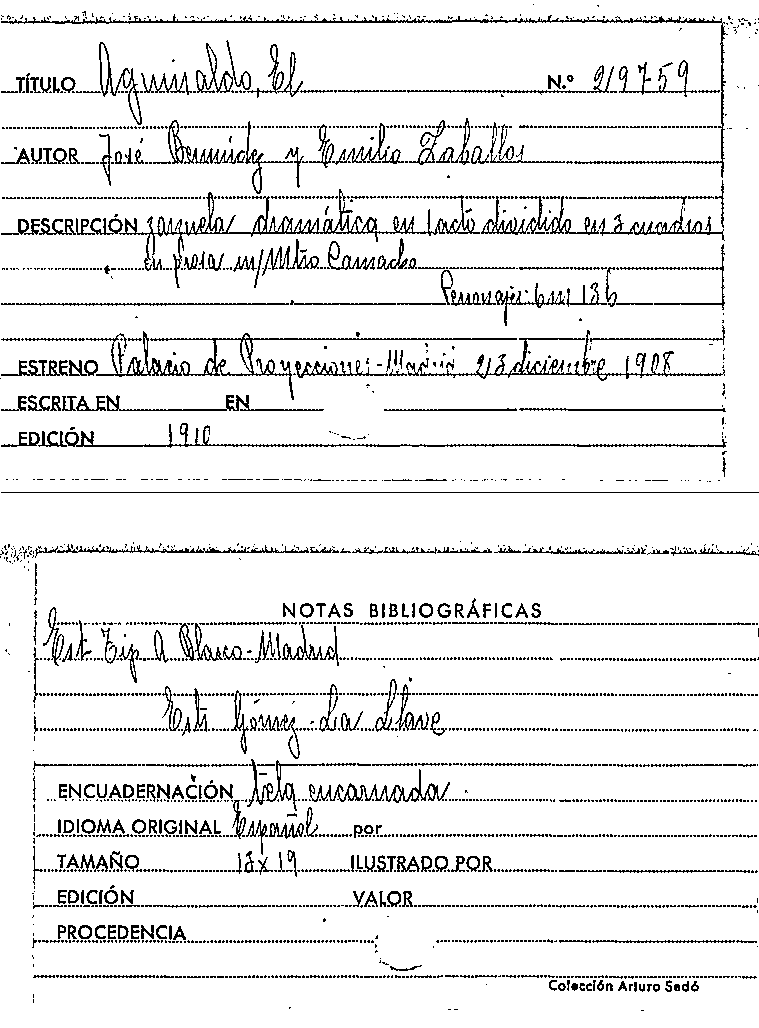 TÍTULO Aguinaldo, El N.º 219759
AUTOR José Bermúdez y Emilio Zaballos
DESCRIPCIÓN zarzuela dramática en 1 acto dividido en 3 cuadros
en prosa m/Mtro Camacho
Personajes: 6m 13h
ESTRENO Palacio de Proyecciones-Madrid 23 diciembre 1908
ESCRITA EN EN
EDICIÓN 1910
NOTAS BIBLIOGRÁFICAS
Est Tip A Blanco-Madrid
Esti Gómez-La Llave
ENCUADERNACIÓN tela encarnada
IDIOMA ORIGINAL Español por
TAMAÑO 13x19 ILUSTRADO POR
EDICIÓN VALOR
PROCEDENCIA
Colección Arturo Sedó